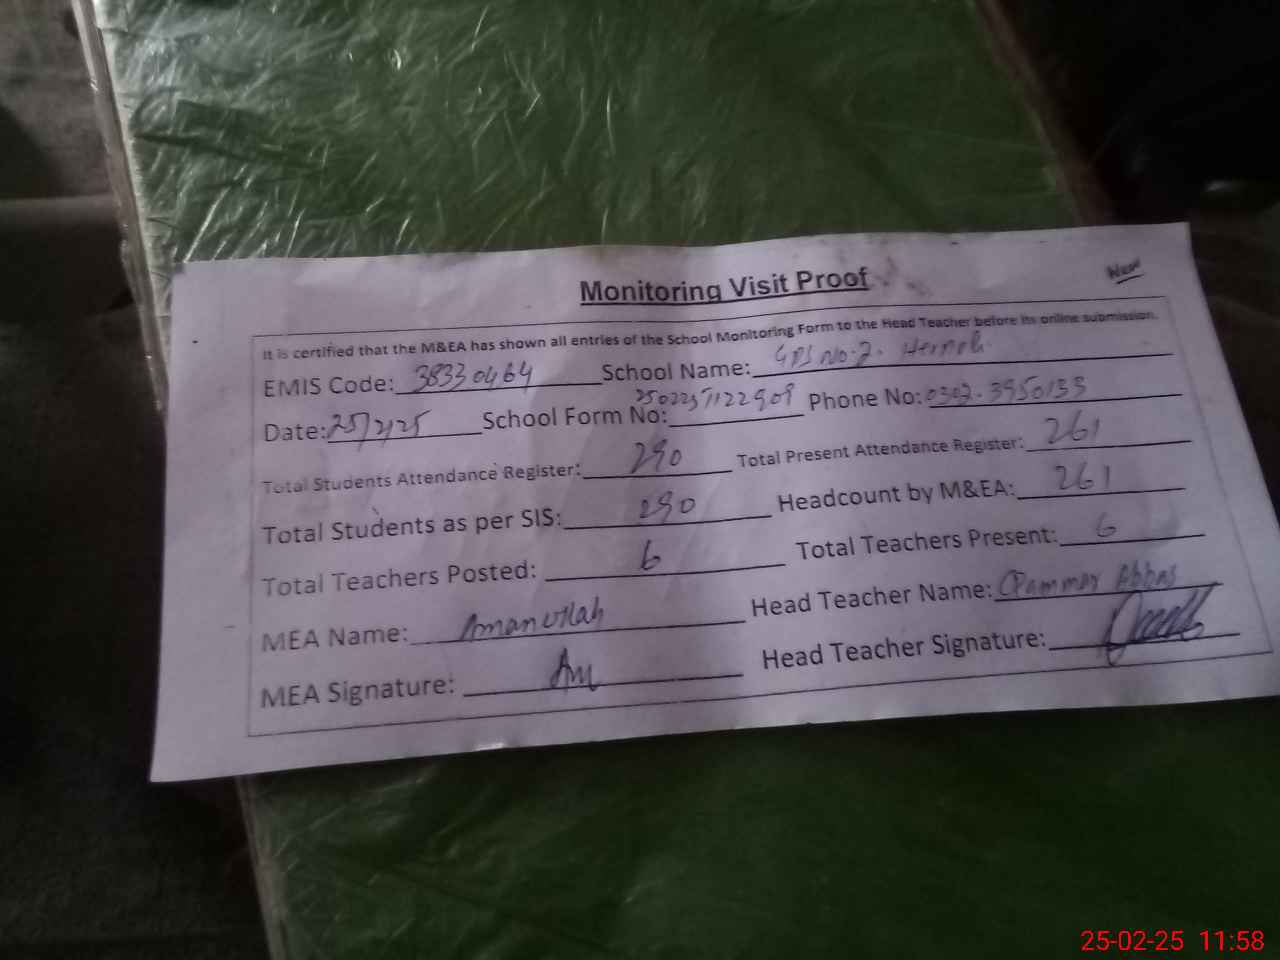 Monitoring Visit Proof
New
It is certified that the M&EA has shown all entries of the School Monitoring Form to the Head Teacher before its online submission.
EMIS Code: 38330464 School Name: GPS No: 2.
Date: 25/2/25 School Form No: Phone No:
Total Students Attendance Register: 290 Total Present Attendance Register: 261
Total Students as per SIS: 290 Headcount by M&EA: 261
Total Teachers Posted: 6 Total Teachers Present: 6
MEA Name: Amanullah Head Teacher Name: Abbas
MEA Signature: Head Teacher Signature:
25-02-25 11:58